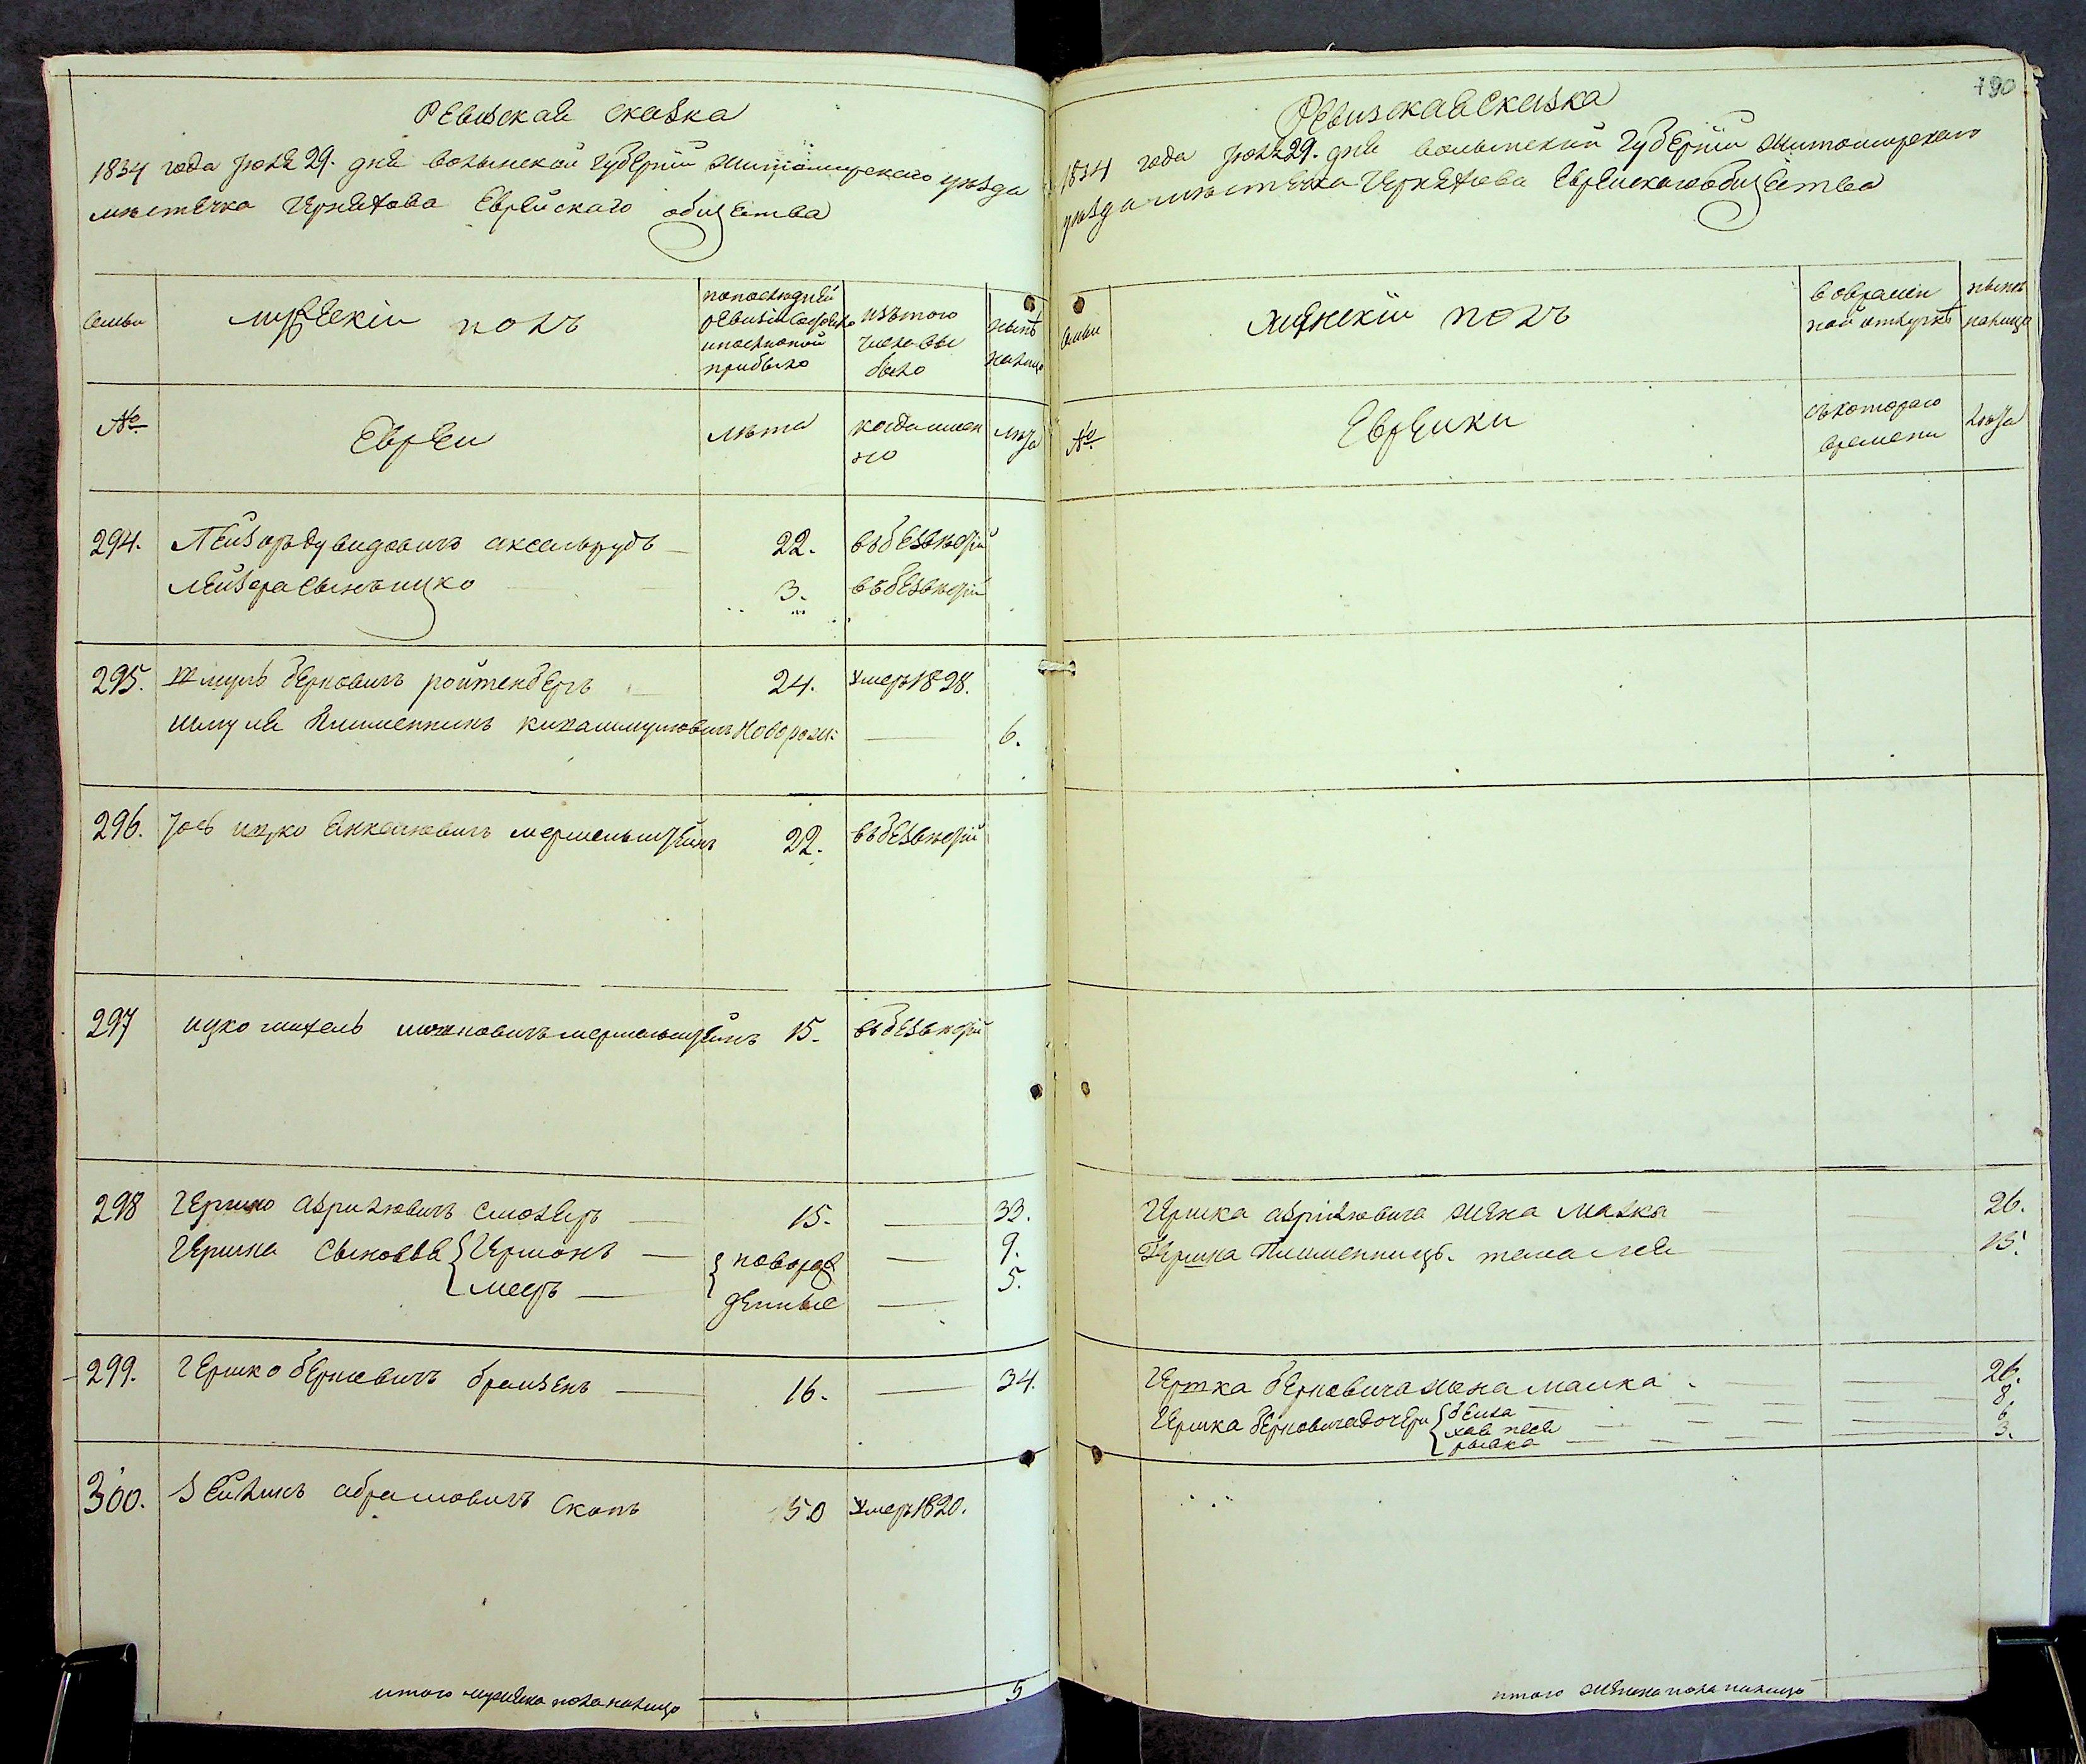 Ревизская сказка
1834 года Июля 29. дня волынской губерній житомирскаго уѣзда
мѣстечка Черняхова Еврейскаго общества
семьи
мужескій полъ
по последней
ревизіи состояло
и после оной
прибыло
изъ того
числа вы
было
ныне
налицо
№
Евреи
лѣта
когда имен
но
лѣта
294. Лейзоръ дувидовичъ аксельрудъ 22. въ безвести
Лейзора сынъ ицко 3. въ безвести
295. шмуль берковичъ ройтенбергъ 24. умеръ 1828.
шмуля племенникъ шмулювичъ новорож: 6.
296. Іось ицко мермельштейнъ 22. въ безвести
297 ицко мермельштейнъ 15. въ безвести
298 Гершко азрилювичъ смоляръ 15. 33.
Гершка сыновья Гершонъ новорож 9.
мееръ денные 5.
299. Гершко берковичъ 16. 34.
300. Зейликъ абрамовичъ скопъ 50 умеръ 1820.
итого мужеска пола налицо 5
190
Ревизская сказка
1834 года Июля 29. дня волынской губерніи житомирскаго
уѣзда мѣстечка Черняхова Еврейскаго общества
семьи
женскій полъ
во времен
ной отлучкѣ
ныне
налицо
№
Еврейки
съ котораго
времени
лѣта
Гершка азрилювича жена малка 26.
Гершка племенница 15.
Гершка берковича жена малка 26.
Гершка берковича дочери бейла 8
хая песя 6
рывка 3.
итого женска пола налицо